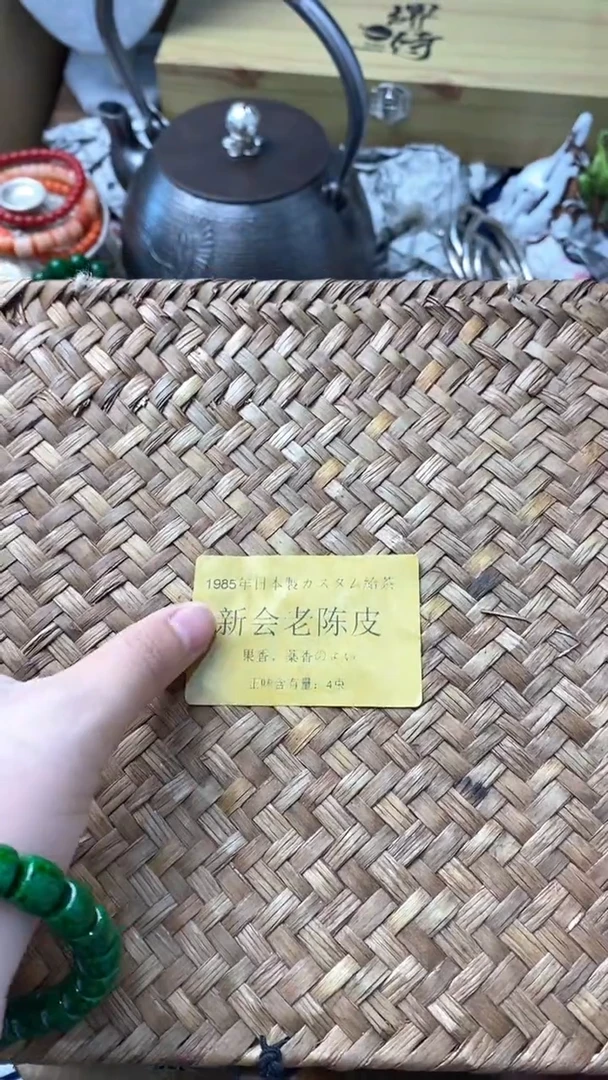 1985年日本製カスタム
新会老陈皮
果香、薬香のよい
正味含有量：4